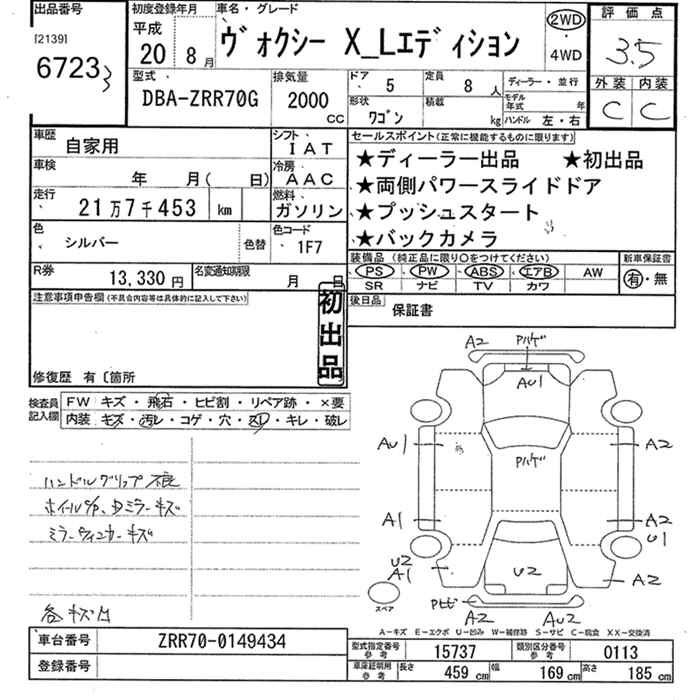 出品番号
[2139]
6723
初度登録年月
平成
20 8月
車名・グレード
ヴォクシー X_Lエディション
2WD
・
4WD
評価点
3.5
外装 内装
C C
型式
DBA-ZRR70G
排気量
2000
CC
ドア 5
定員 8人
形状 ワゴン
積載 kg
ディーラー・並行
モデル年式 年
ハンドル 左・右
車歴 自家用
シフト IAT
車検 年 月( 日)
冷房 AAC
走行 21万7千453 km
燃料 ガソリン
色 シルバー
色替
色コード 1F7
R券 13,330円
名変通知期限 月 日
セールスポイント(正常に機能するものに限ります)
★ディーラー出品 ★初出品
★両側パワースライドドア
★プッシュスタート
★バックカメラ
装備品(純正品に限り○をつけてください)
PS PW ABS エアB AW
SR ナビ TV カワ
新車保証書
有・無
後日品 保証書
注意事項申告欄(不具合内容等は具体的に記入して下さい)
初出品
修復歴 有〔箇所
検査員記入欄
FW キズ・飛石・ヒビ割・リペア跡・×要
内装 キズ・汚レ・コゲ・穴・スレ・キレ・破レ
ハンドルグリップ不良
ミラーウィンカーキズ
A2 Pハゲ
AU1
AU1 Pハゲ A2
A1 A2
U1
U2
A1 U2 A2
スペア
Pヒビ A2 AU2
A-キズ E-エクボ U-凹み W-補修跡 S-サビ C-腐食 XX-交換済
車台番号 ZRR70-0149434
登録番号
型式指定番号 参考 15737
類別区分番号 参考 0113
車庫証明用 参考 長さ 459cm 幅 169cm 高さ 185cm